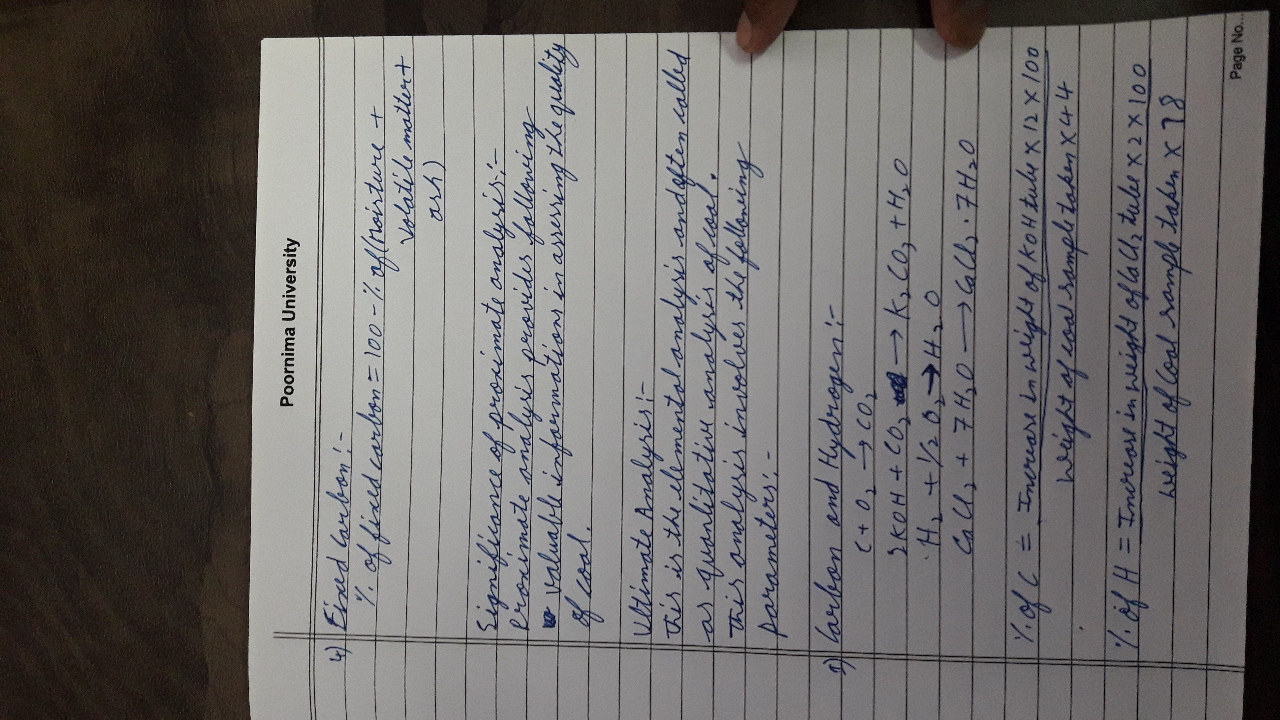 Poornima University
4) Fixed Carbon:-
% of fixed carbon = 100 - % of (Moisture +
Volatile matter +
ash)
Significance of proximate analysis:-
Proximate analysis provides following
valuable informations in assessing the quality
of coal.
Ultimate Analysis:-
This is the elemental analysis and often called
as quantitative analysis of coal.
This analysis involves the following
parameters:-
1) Carbon and Hydrogen:-
C + O₂ → CO₂
2KOH + CO₂ → K₂CO₃ + H₂O
H₂ + 1/2 O₂ → H₂O
CaCl₂ + 7H₂O → CaCl₂·7H₂O
% of C = Increase in weight of KOH tube × 12 × 100
Weight of coal sample taken × 44
% of H = Increase in weight of CaCl₂ tube × 2 × 100
Weight of Coal sample taken × 18
Page No...